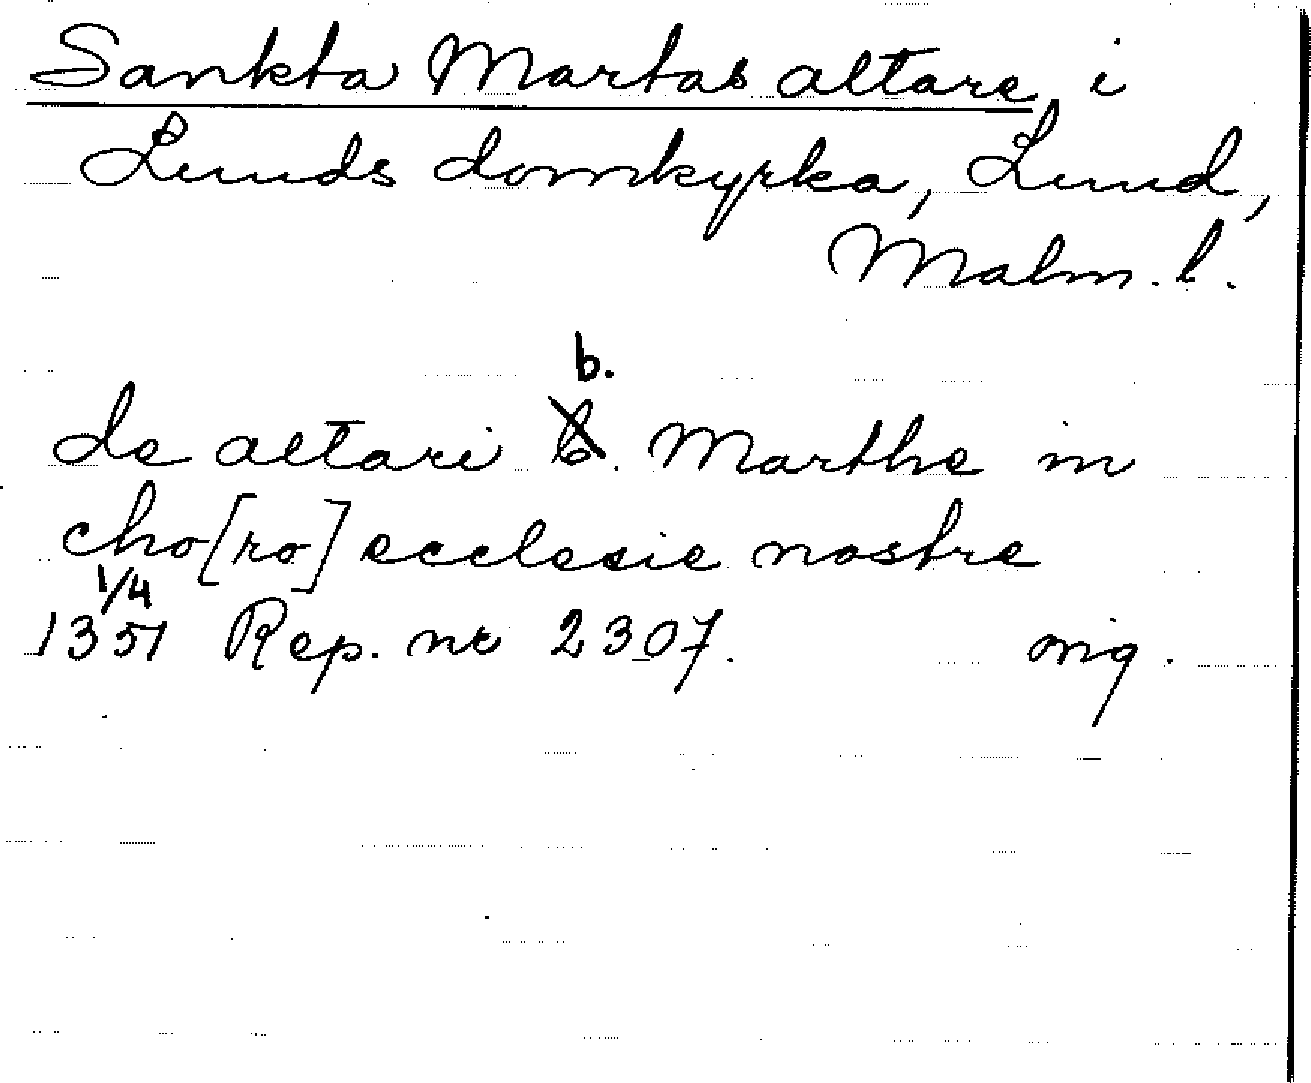 Sankta Martas altare i
Lunds domkyrka, Lund,
Malm. l.
b.
de altari b. Marthe in
cho[ro] ecclesie nostre
1/4
1351 Rep. nr 2307. orig.